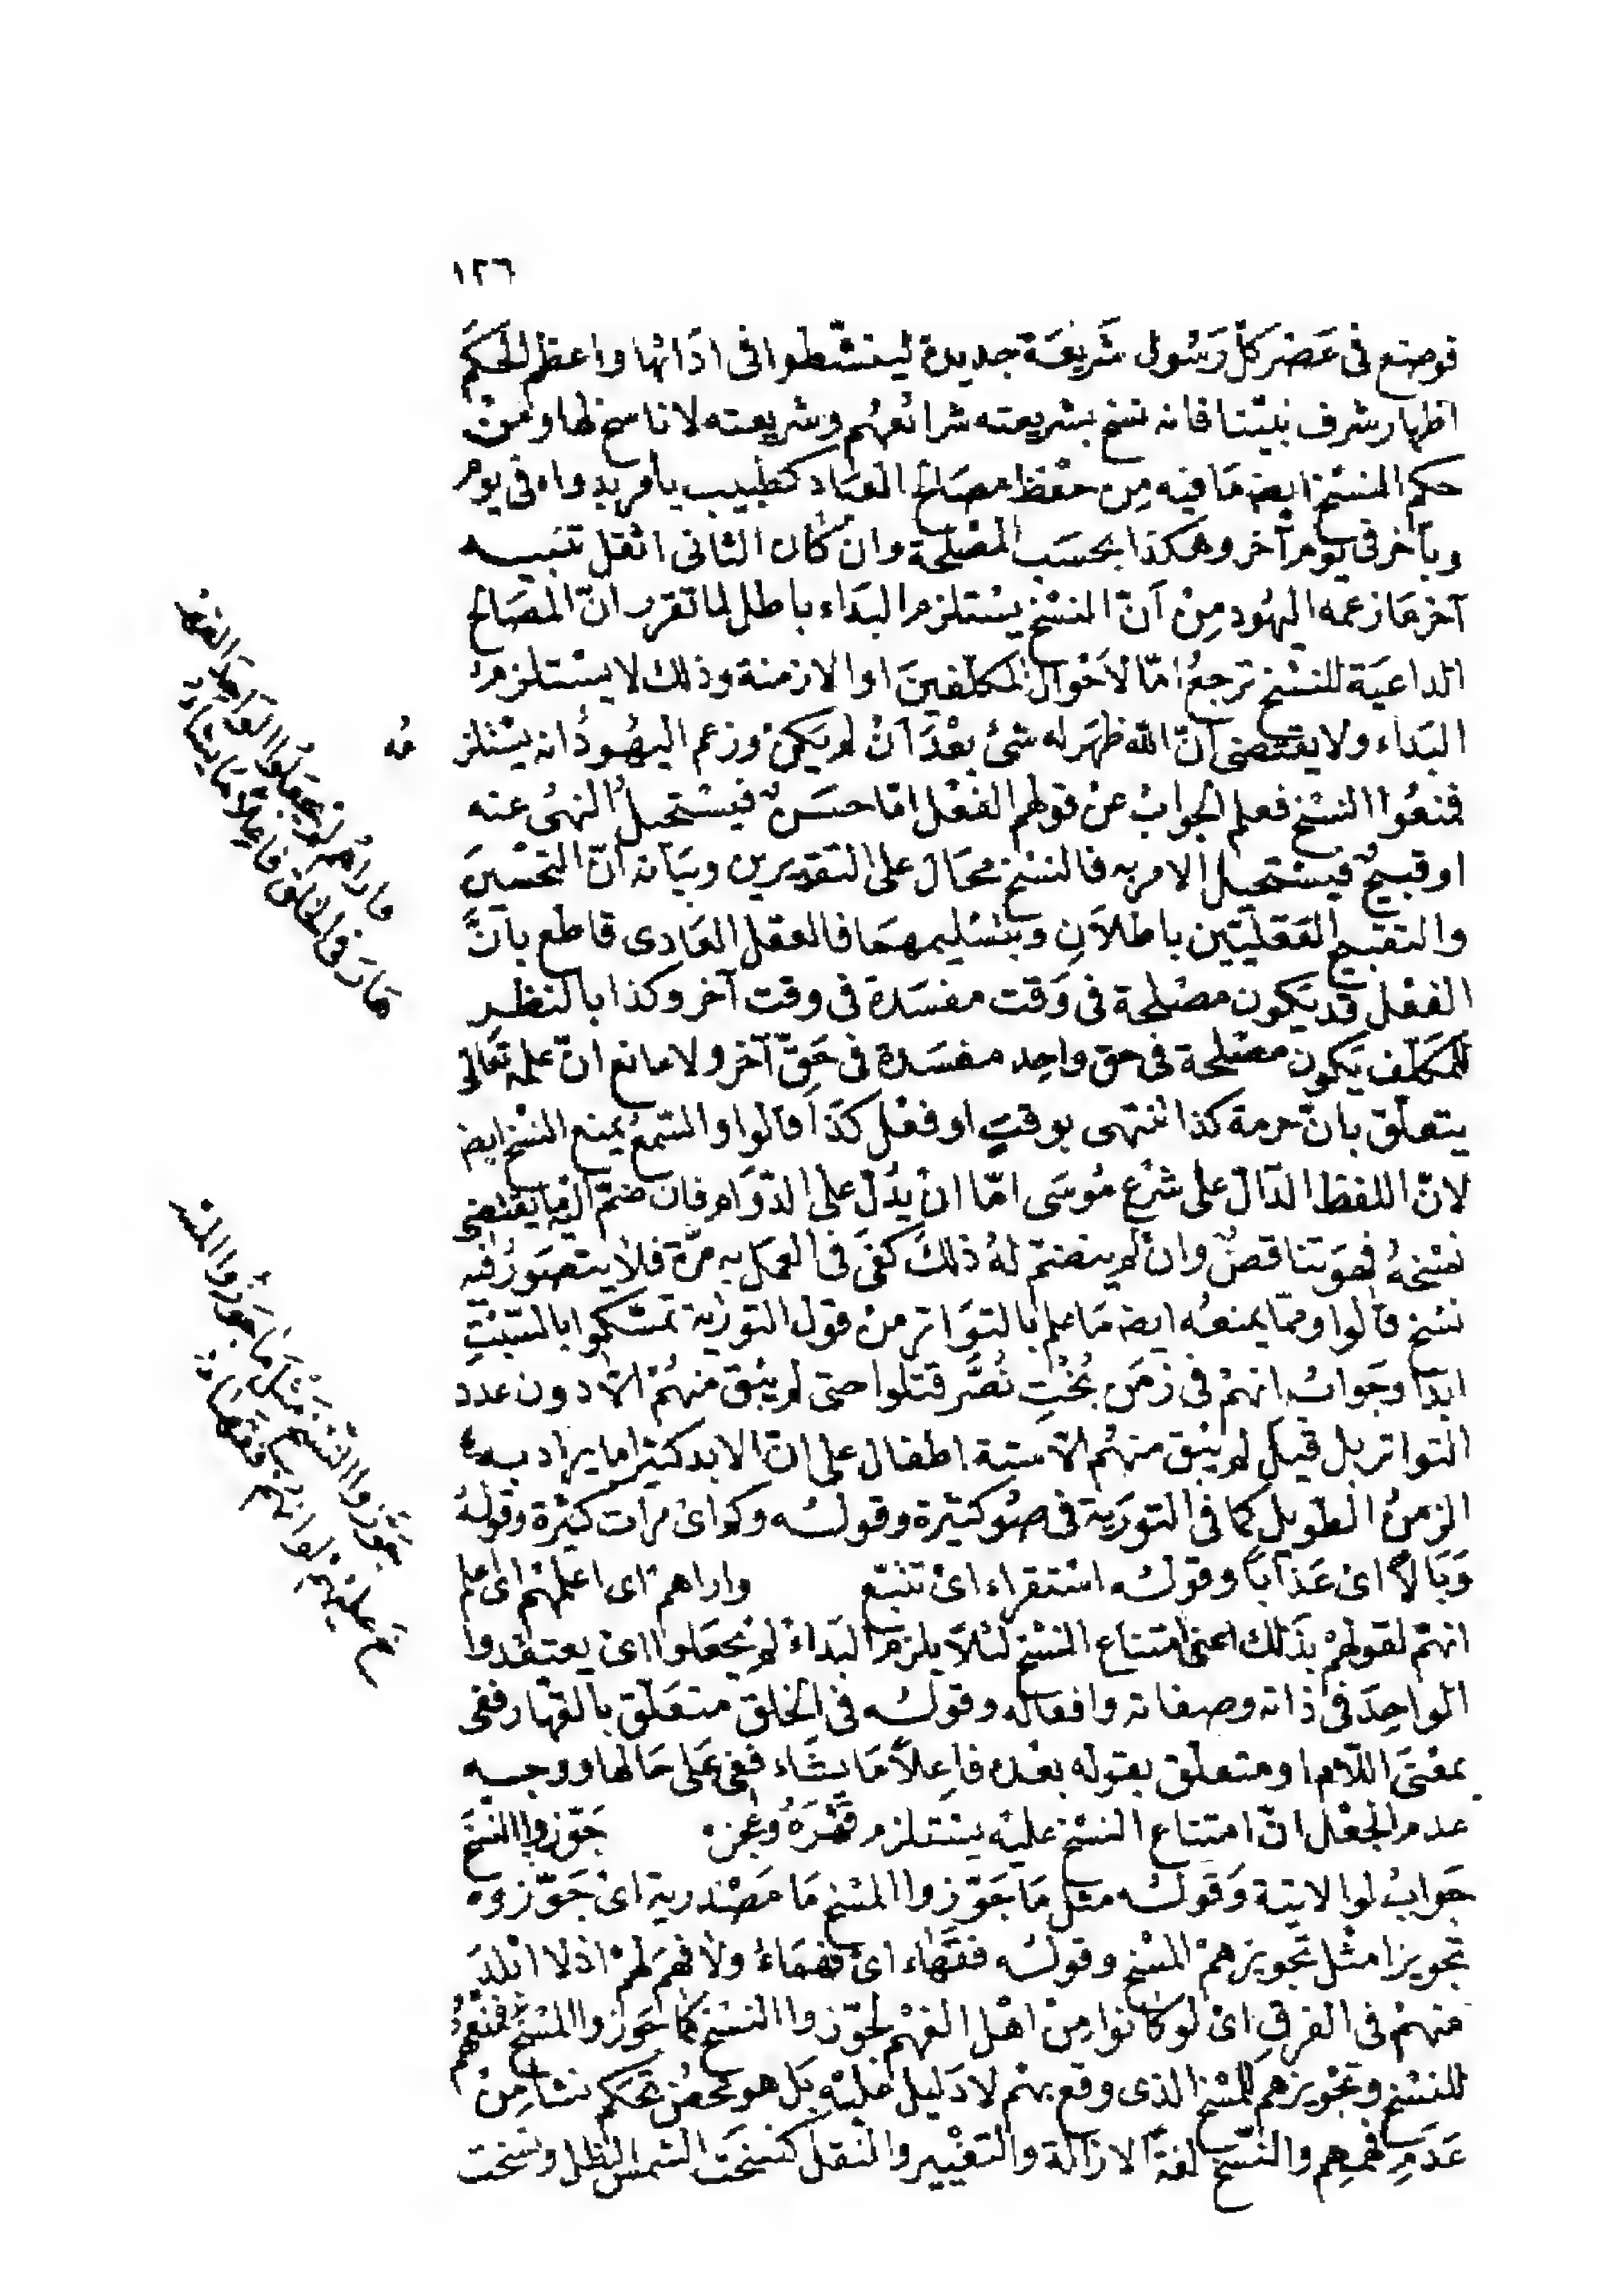 ١٢٦
فوضع فى عَصْر كلّ رَسُول شَرِيعَة جديدة لينشّطوا فى ادَائها واعظم الحكَم
اظهار شرف نبيّنا فانه نسخ بشريعته شرائعهُم وشريعته لا ناسخ لها ومنْ
حكم النسْخ ايضا مَا فيه مِن حفْظ مصَالح العبَاد كطبيب يأمر بدواء فى يوم
وبآخر فى يوم آخر وهكذا بحسَب المصْلحة وان كان الثانى اثقل تنبيه
آخر مَا زعمه اليهُود مِنْ اَنّ النسْخ يسْتلزم البدَاء باطل لما تقرر انّ المصَالح
الداعيَة للنسْخ ترجعُ امّا لاَحْوال المكلّفينَ او الازمنة وذلك لا يسْتلزمُ
البَداء ولا يقتضى اَنّ الله ظهَر له شئ بعْدَ اَنْ لم يَكنْ وزعم اليهُودُ انه يسْتلز مُه
فمنعُوا النسْخ فعلم الجوابْ عنْ قولهم الفعْل امّا حسَنٌ فيسْتحيلُ النهىُ عنه
او قبيحٌ فيسْتحيل الامر به فالنسْخ محَال على التقديرين وبيَانه انّ التحْسينَ
والتقبيح العَقليّين باطلاَن وبتسْليمهمَا فالعقل العَادى قاطع بانَّ
الفعْل قد يَكون مصْلحة فى وَقت مفسَدة فى وقت آخر وكذا بالنظر
للمكلّف يَكون مصْلحة فى حق واحِد مفسَدة فى حَقّ آخر ولا مانع انّ علمه تعَالى
يتعلّق بانّ حرمة كذا تنتهى بوقتٍ او فعْل كذَا قالوا والسّمعُ يمنع النسْخ ايضا
لانّ اللفظ الدّال على شرْع مُوسَى امّا انْ يدُلّ على الدّوَام فان ضمّ اليْه مَا يقتضى
نسْخهُ فهوَ تناقضٌ وان لم ينضمّ لهُ ذلكَ كفى فى العمَل به مرّة فلا يتصَوّرُ فيه
نسْخ قالوا وممّا يمنعُه ايضا مَا علم بالتوَاتر منْ قول التوْرٰية تمسّكوا بالسّبْتِ
ابدًا وجَوابُه انهمْ فى زمَن بُخْتِ نُصَّر قتلوا حتى لم يبْق منهُمْ الّا دون عدد
التواتر بل قيل لم يبْق منهُم الّا ستة اطفال على انّ الابد كثيرًا ما يراد به
الزمنُ الطويل كما فى التورَية فى صُوَر كثيرة وقولُه وكم اىْ مرات كثيرة وقولُه
وَبَالاً اىْ عَذابًا وقولُه اسْتقراء اىْ تتبّع واراهم اى اعلمهْم اى علم
انهمْ لقولهمْ بذَلك اعنى امتناع النسْخ لئلاّ يلزمَ البَداءُ لم يجعَلوا اىْ يعتقدوا
الواحِدَ فى ذاته وصفاته وافعاله وقولُه فى الخلق متعَلّق بالقهّار ففى
بمعْنَى اللّام او متعلّق بقوله بعْده فاعِلاً مَا يشَاء ففى عَلى حَالها ووجه
عدم الجعْل انّ امتناع النسْخ عليْه يسْتلزم قَهْرَهُ وعجزه جَوّزوا النسْخَ
جَوابُ لوا لاتية وَقولُه مثل مَا جَوّزوا المسْخ مَا مَصْدرية اىْ جَوّزوه
تجْويزا مثْل تجويزهمْ المسْخ وقولُه فقهَاء اىْ فهَمَاءُ ولا فهمَ لهمْ اذ لا ابْلدَ
منهمْ فى الفرق اىْ لو كانوا مِنْ اهْل الفهْم لجَوّزوا النسْخ كما جَوّزوا المسْخ فمنْعهُمْ
للنسْخ وتجْويزهم للمسْخ الذى وقع بهمْ لا دَليل عَليْه بَل هو محْض تحَكّم نشأ مِنْ
عَدَم فهمِهم والنّسخ لغةً الازالة والتغيْير والنقل كنسَختْ الشمس الظل ونسَخت
واراهُم لم يجعَلوا الوَاحِدَ القهّا
رَ فى الخلق فاعِلاً مَا يشَاءُ
جَوّزوا النسْخَ مثل مَا جَوّزوا المسْ
خَ عليْهمْ لوا نهُمْ فقهَاءُ